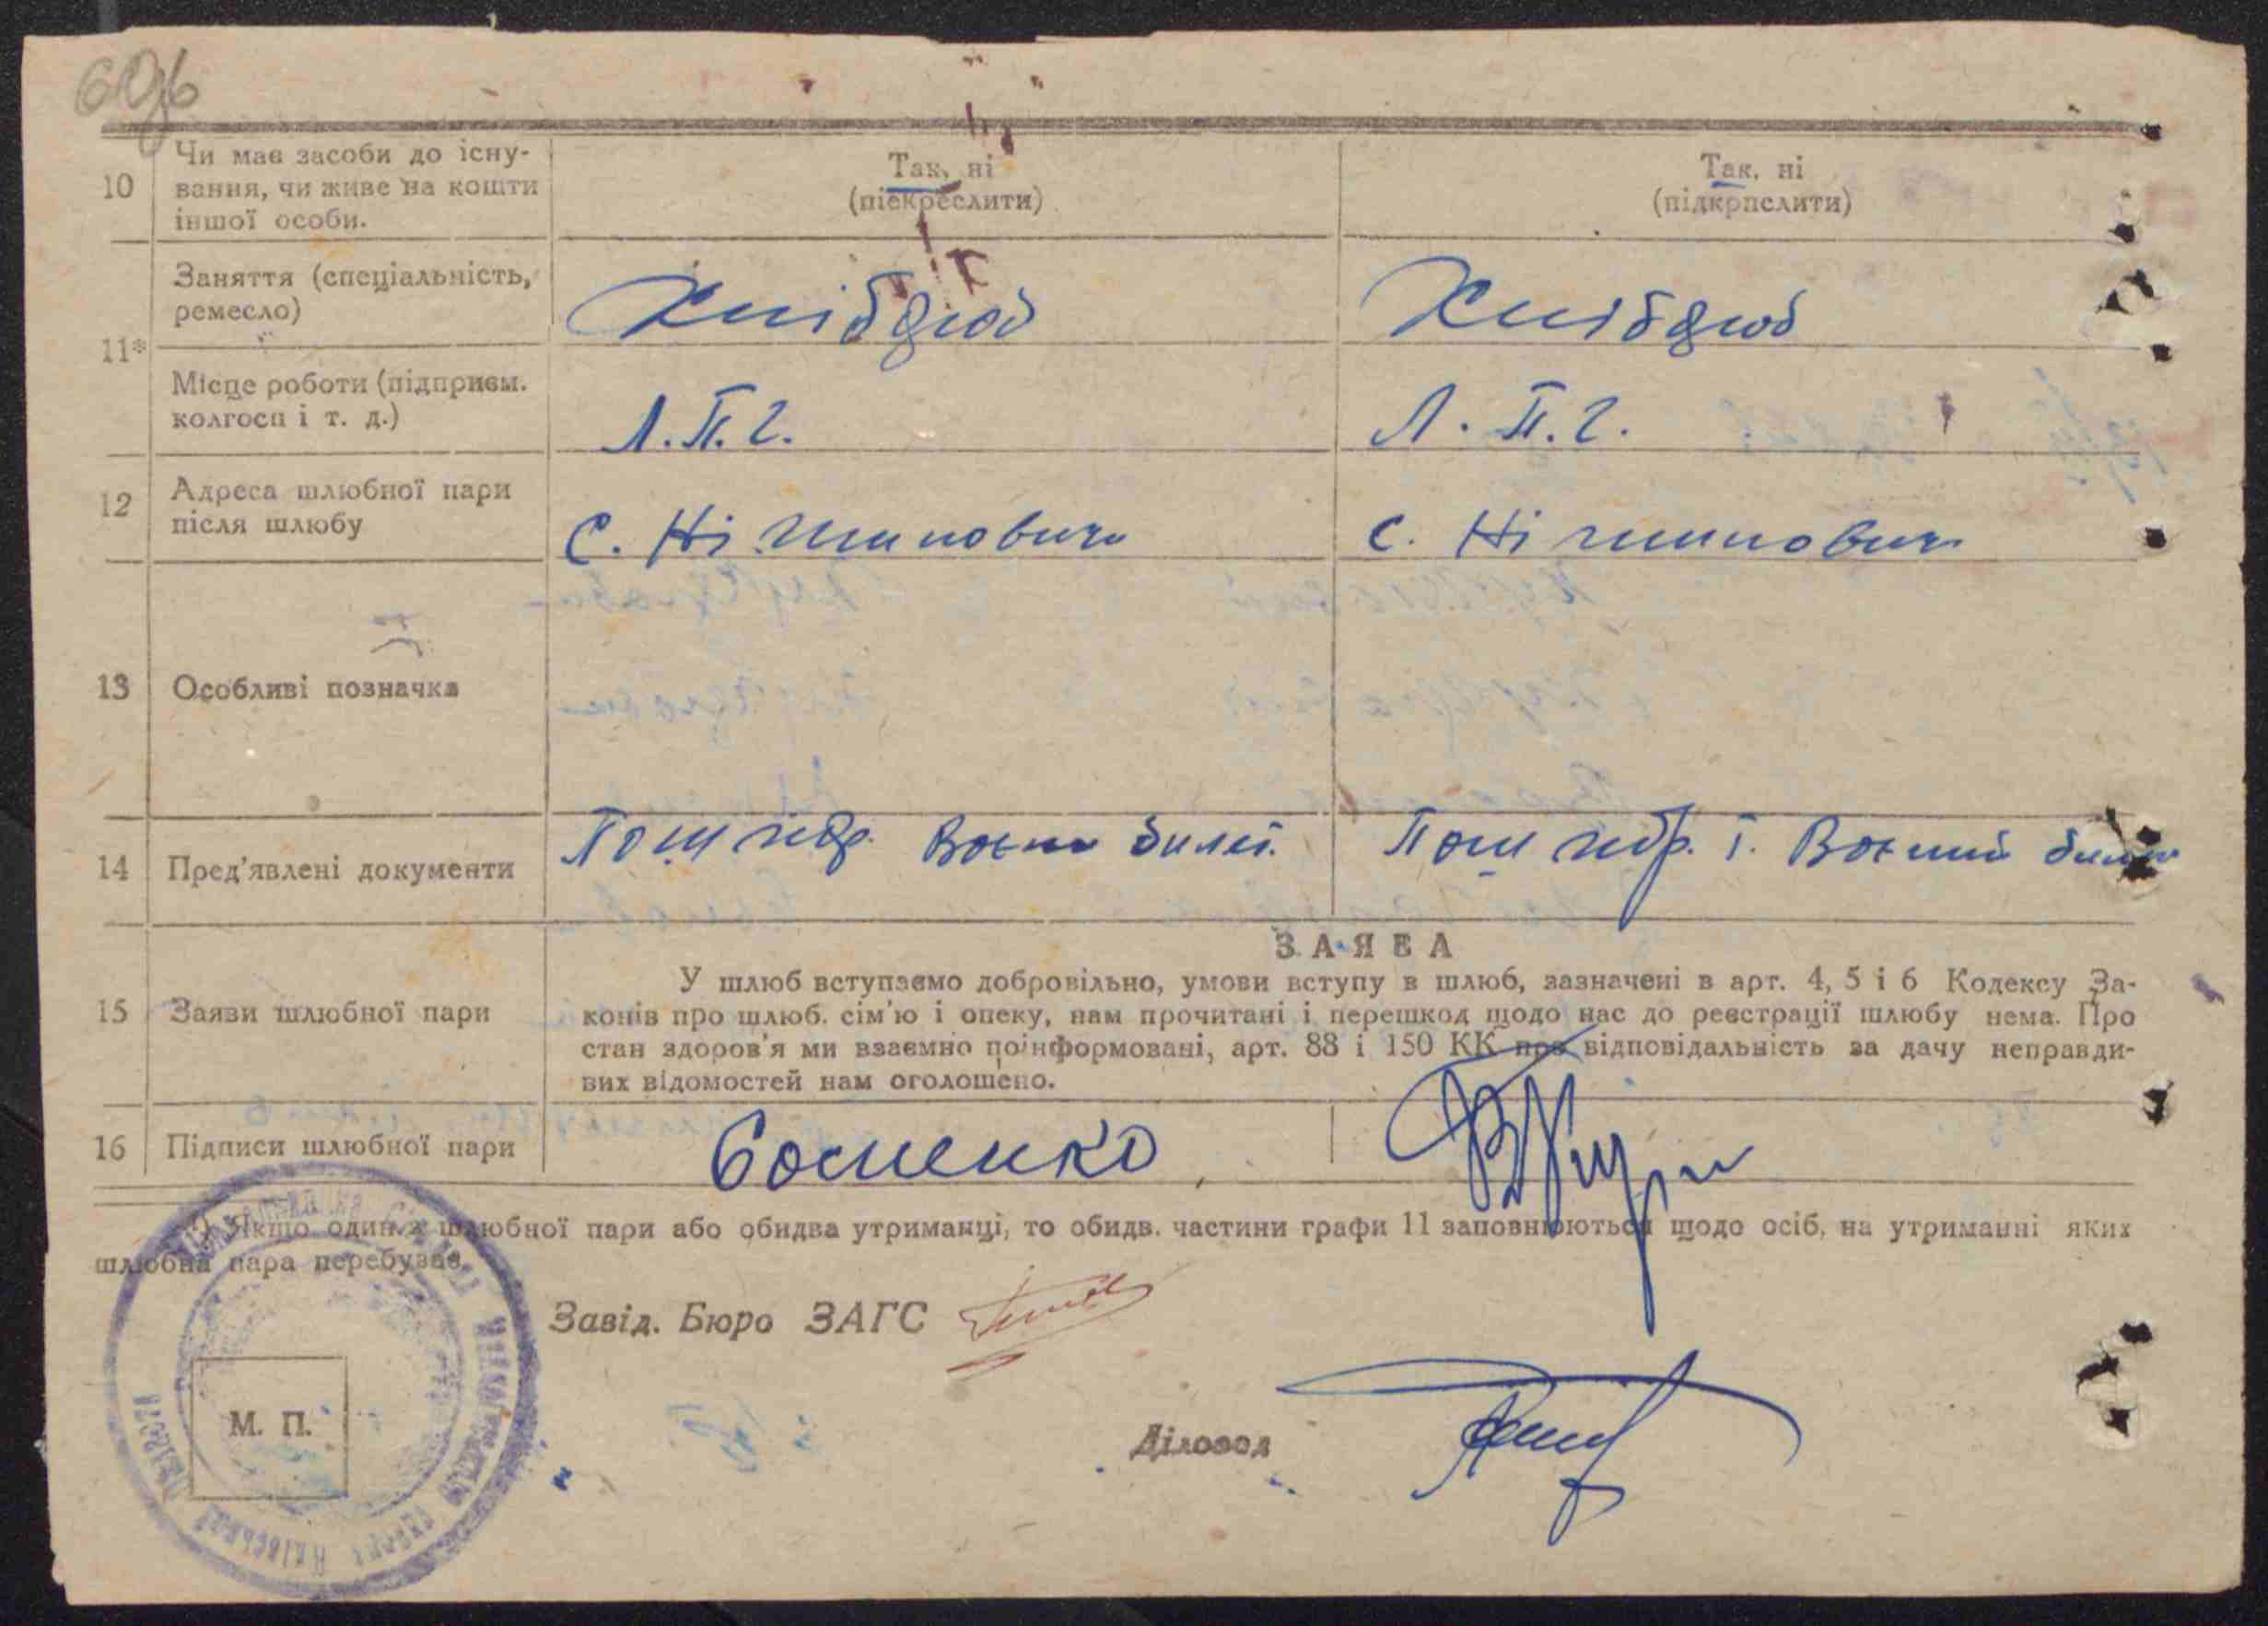 10 Чи має засоби до існу-
вання, чи живе на кошти
іншої особи.
Так, ні
(підкреслити)
Так, ні
(підкрпслити)
11* Заняття (спеціальність,
ремесло)
Хлібороб
Хлібороб
Місце роботи (підприєм.
колгосп і т. д.)
Л.П.Г.
Л.П.Г.
12 Адреса шлюбної пари
після шлюбу
с.
с.
13 Особливі позначка
14 Пред'явлені документи
білет.
15 Заяви шлюбної пари
ЗАЯВА
У шлюб вступаємо добровільно, умови вступу в шлюб, зазначені в арт. 4, 5 і 6 Кодексу За-
конів про шлюб. сім'ю і опеку, нам прочитані і перешкод щодо нас до реєстрації шлюбу нема. Про
стан здоров'я ми взаємно поінформовані, арт. 88 і 150 КК про відповідальність за дачу неправди-
вих відомостей нам оголошено.
16 Підписи шлюбної пари
*) Якщо один з шлюбної пари або обидва утриманці, то обидв. частини графи 11 заповнюються щодо осіб, на утриманні яких
шлюбна пара перебуває.
Завід. Бюро ЗАГС
Діловод
М. П.